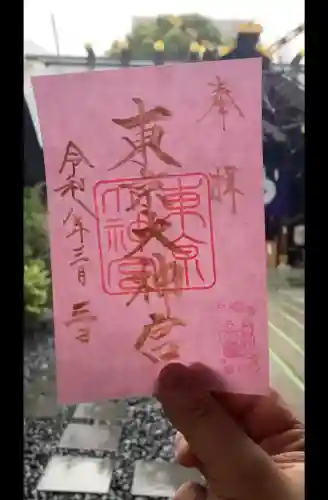 奉拝
東京大神宮
東京大神宮
令和八年三月三日